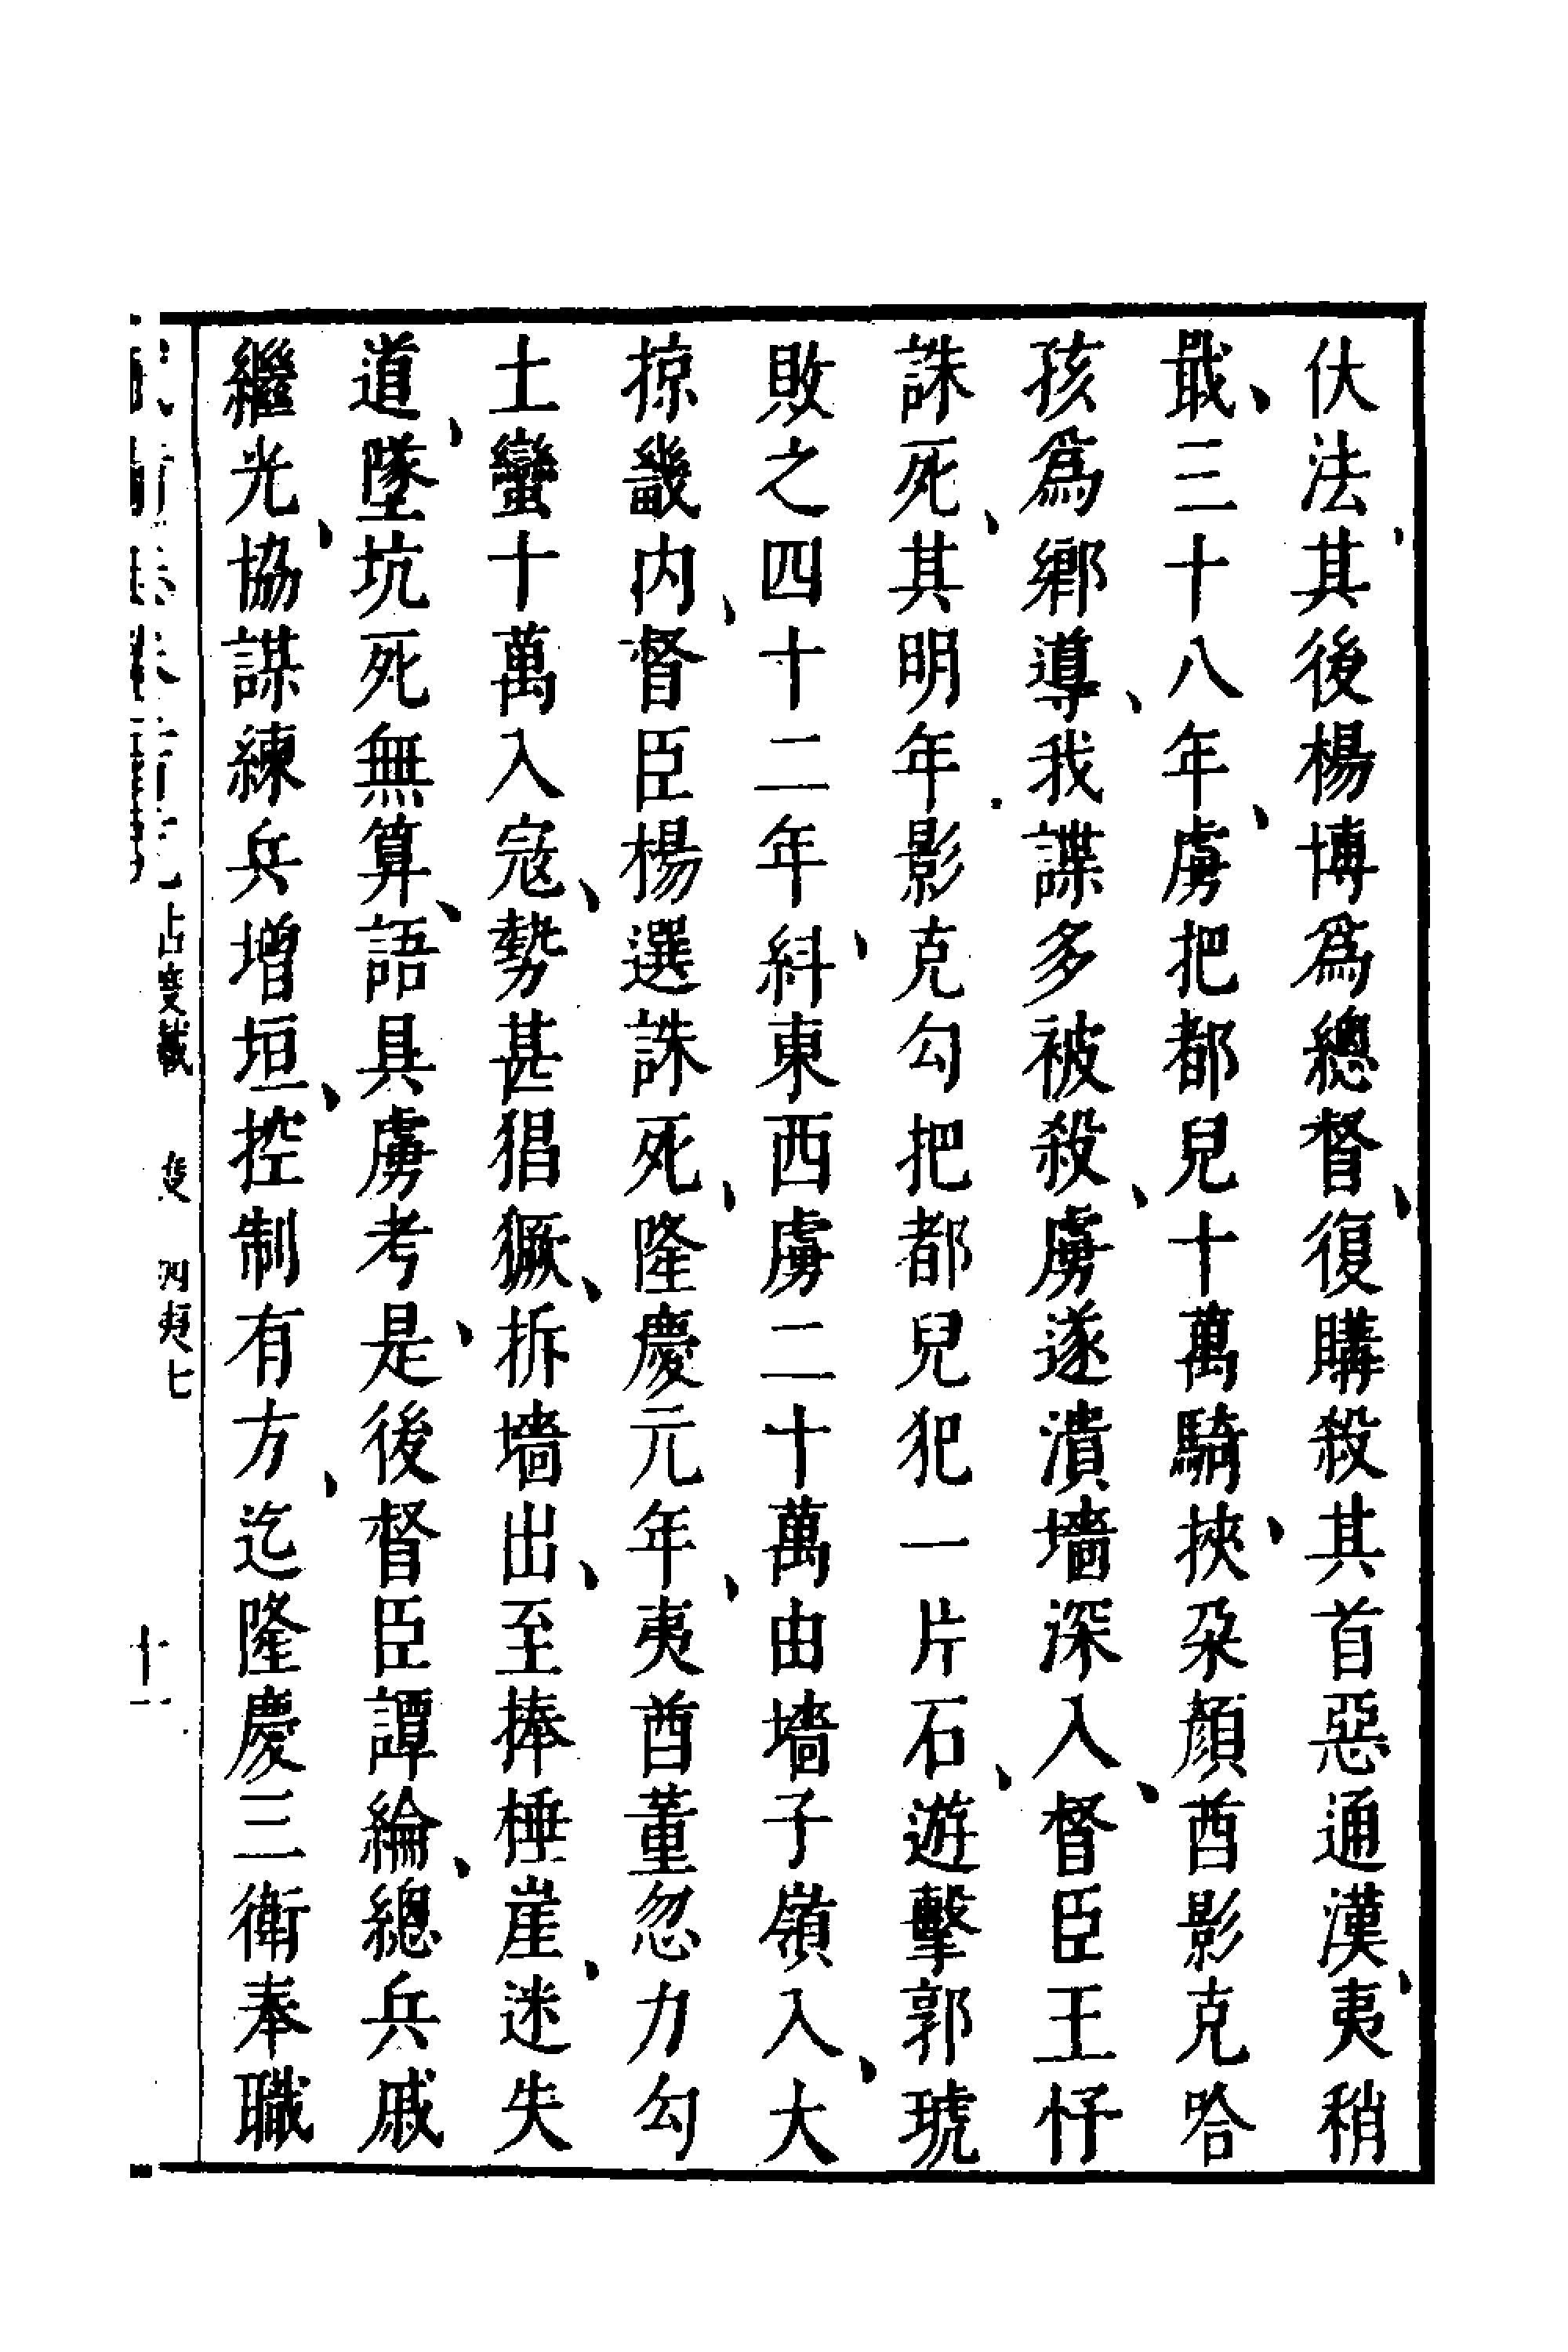 伏法其後楊博爲總督、復購殺其首惡通漢夷、稍
戢、三十八年、虜把都兒十萬騎、挾朶顔酋影克哈
孩爲鄉導、我諜多被殺、虜遂潰墻深入、督臣王忬
誅死、其明年影克勾把都兒犯一片石、遊擊郭琥
敗之四十二年、糾東西虜二十萬由墻子嶺入、大
掠畿内、督臣楊選誅死、隆慶元年、夷酋董忽力勾
土蠻十萬入寇、勢甚猖獗、拆墻出、至捧棰崖、迷失
道、墜坑死無算、語具虜考、是後督臣譚綸、總兵戚
繼光、協謀練兵增垣、控制有方、迄隆慶三衛奉職
占度載 度 四夷七
十一